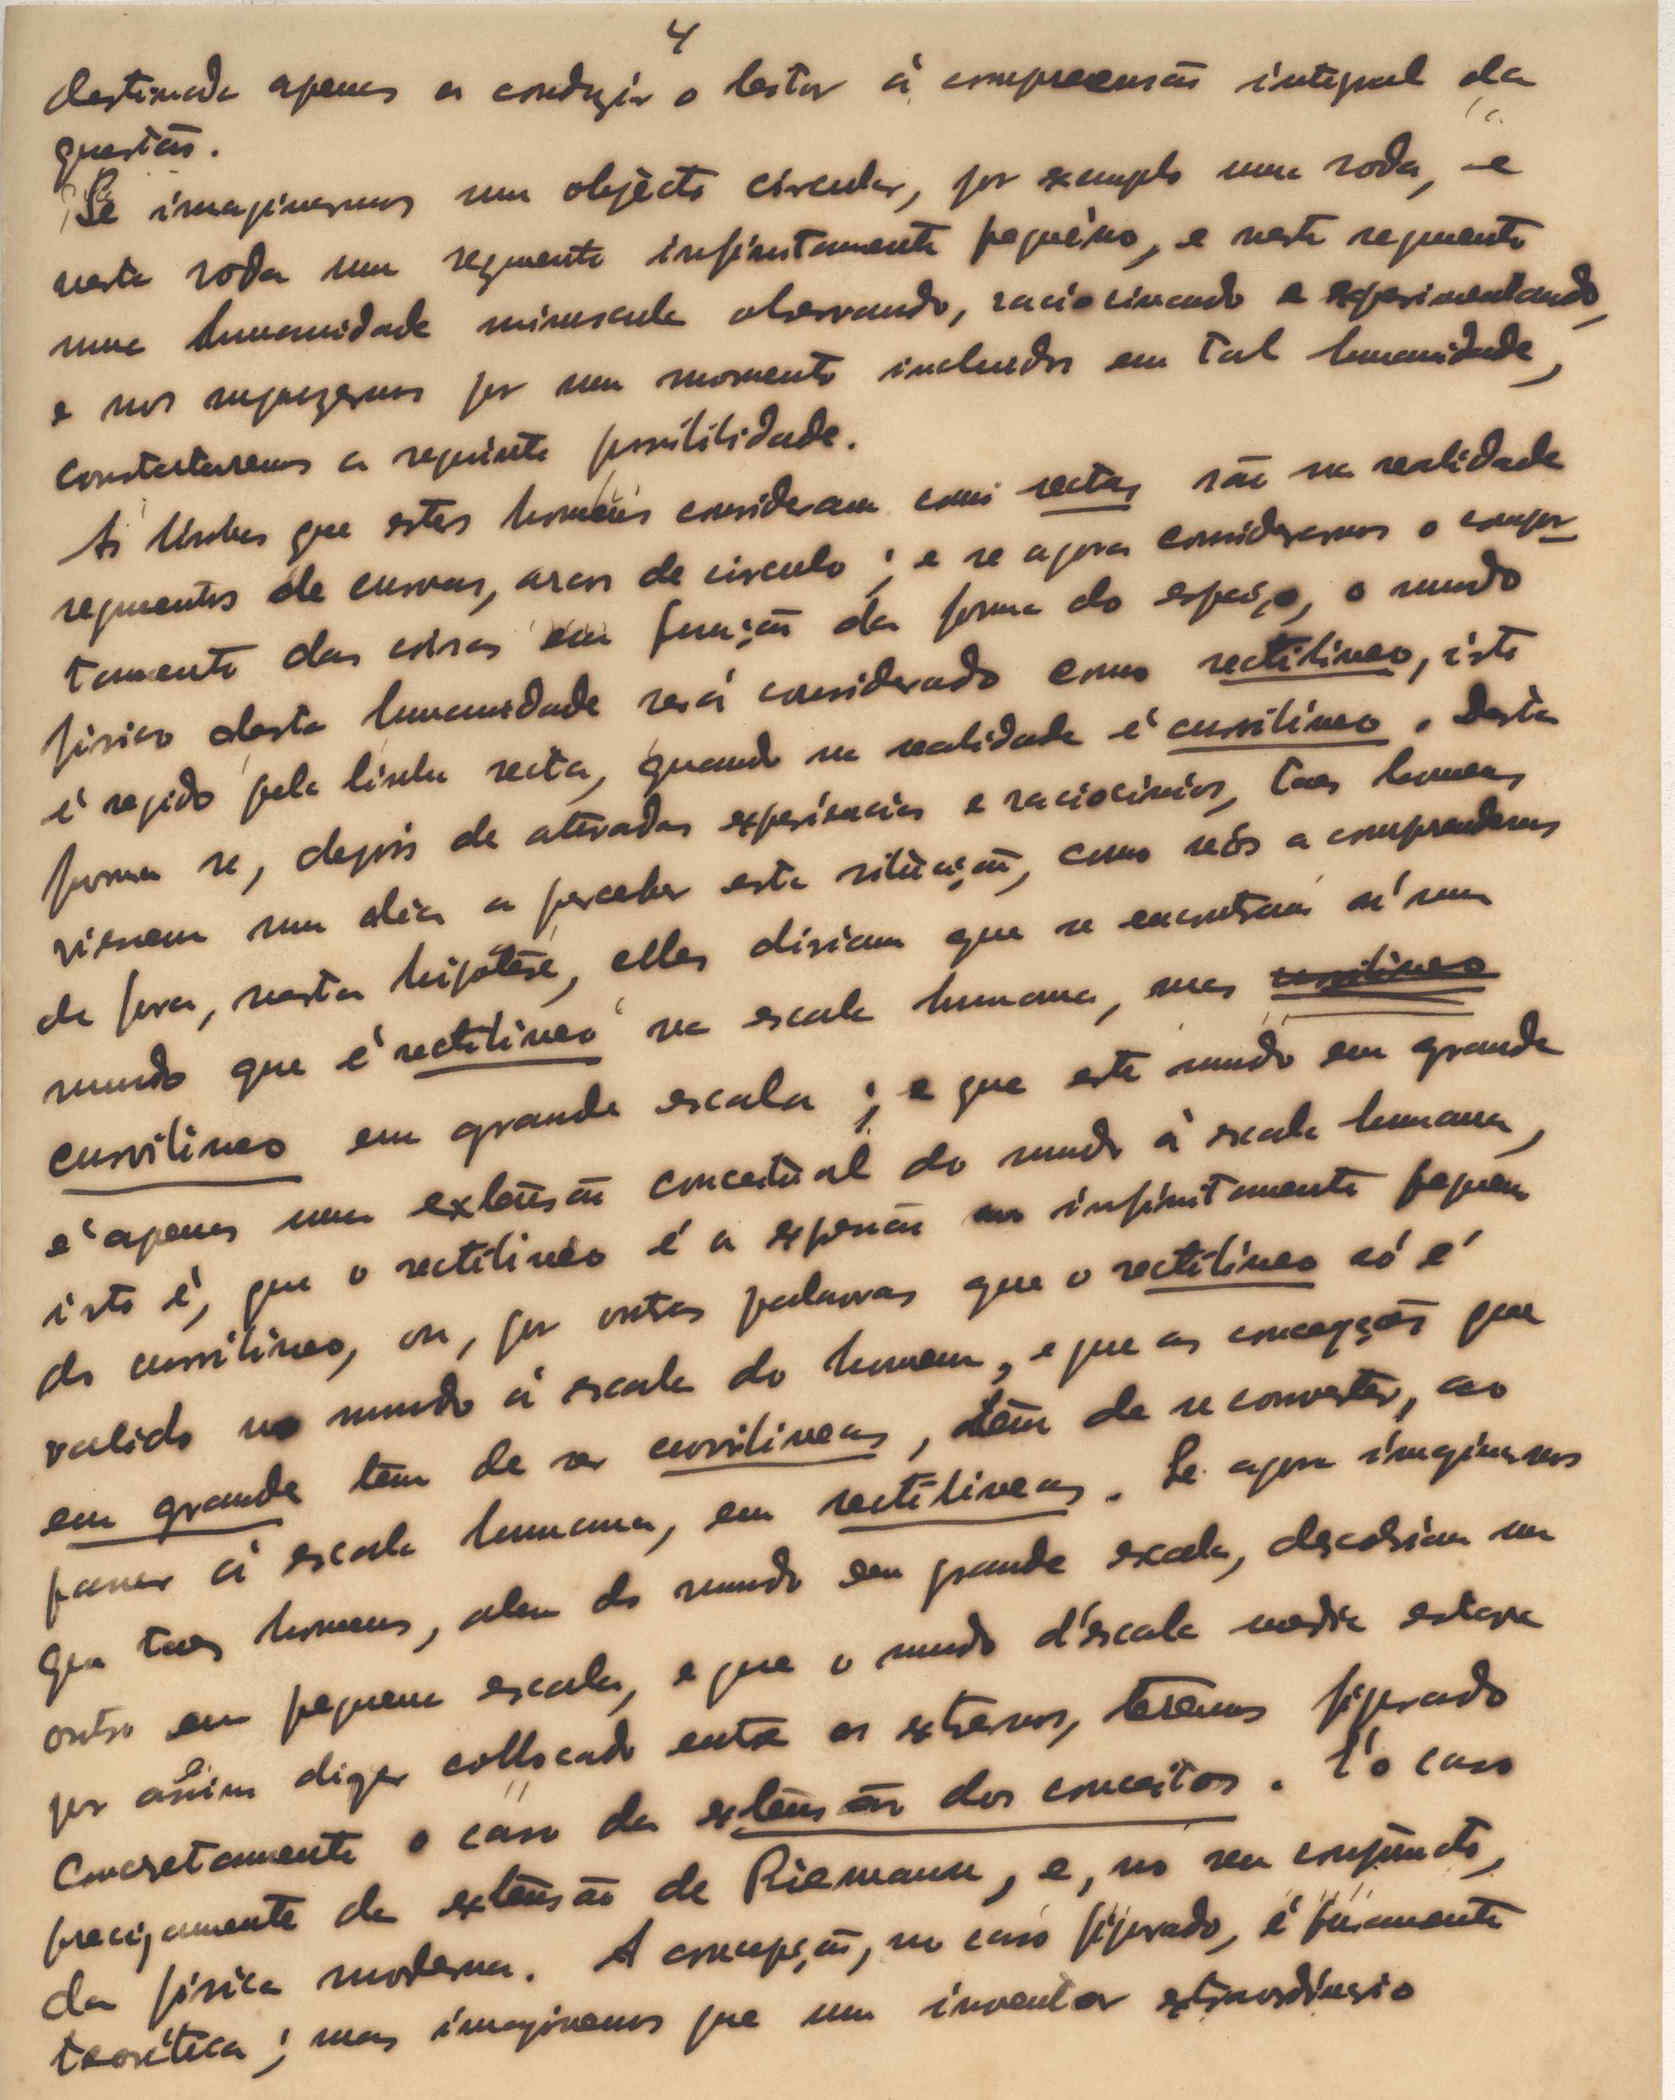 4
destinada apenas a conduzir o leitor à compreensão integral da
questão.
Se imaginarmos um objécto circular, por exemplo uma roda, e
nesta roda um segmento infinitamente pequêno, e neste segmento
uma humanidade minuscula observando, raciocinando e experimentando,
e nos supuzermos por um momento incluidos em tal humanidade,
constataremos a seguinte possibilidade.
As linhas que estes homens consideram como rectas são na realidade
segmentos de curvas, arcos de circulo; e se agora considerarmos o compor-
tamento das coisas em função da forma do espaço, o mundo
fisico desta humanidade será considerado como rectilineo, isto
é regido pela linha recta, quando na realidade é curvilineo. Desta
forma se, depois de aturadas experiencias e raciocinios, taes homens
viessem um dia a perceber esta situação, como nós a comprendemos
de fora, nesta hipótese, elles diriam que se encontram n'um
mundo que é rectilineo na escala humana, mas curvilineo
curvilineo em grande escala; e que este mundo em grande
é apenas uma extensão conceitual do mundo à escala humana,
isto é, que o rectilineo é a expressão no infinitamente pequeno
do curvilineo, ou, por outras palavras que o rectilineo só é
valido no mundo à escala do homem, e que as concepções que
em grande têm de ser curvilineas, têm de se converter, ao
passar à escala humana, em rectilineas. Se agora imaginarmos
que taes homens, alem do mundo em grande escala, descobriam um
outro em pequena escala, e que o mundo d'escala media estava
por assim dizer collocado entre os extremos, teremos figurado
concretamente o caso da extensão dos conceitos. É o caso
precisamente da extensão de Riemann, e, no seu conjuncto,
da fisica moderna. A concepção, no caso figurado, é puramente
teorética; mas imaginemos que um inventor extraordinario